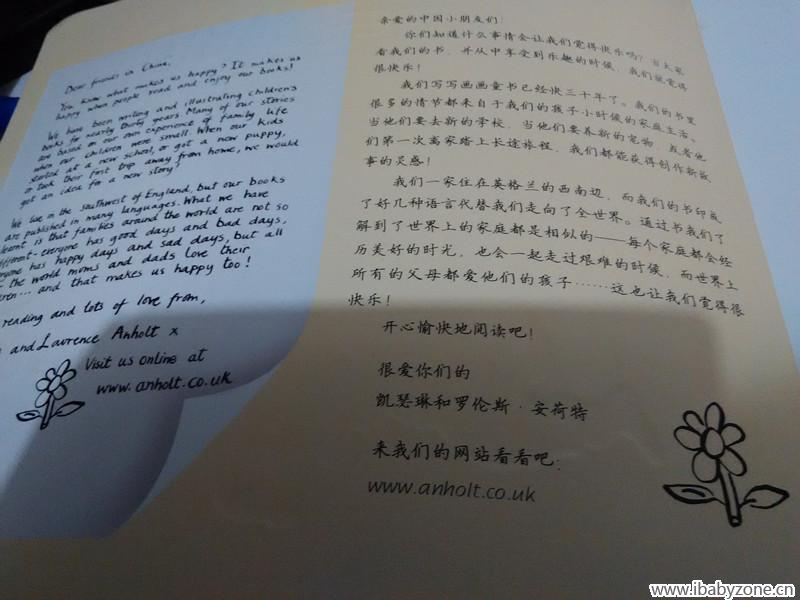 Dear friends in China,
You know what makes us happy? It makes us
happy when people read and enjoy our books!
We have been writing and illustrating children's
books for nearly thirty years. Many of our stories
are based on our own experience of family life
when our children were small. When our kids
started at a new school, or got a new puppy,
or took their first trip away from home, we would
got an idea for a new story!
We live in the southwest of England, but our books
are published in many languages. What we have
learnt is that families around the world are not so
different - everyone has good days and bad days,
everyone has happy days and sad days, but all
the world moms and dads love their
and that makes us happy too!
reading and lots of love from,
and Laurence Anholt x
Visit us online at
www.anholt.co.uk
亲爱的中国小朋友们:
你们知道什么事情会让我们觉得快乐吗?当大家
看我们的书,并从中享受到乐趣的时候,我们就觉得
很快乐!
我们写写画画童书已经快三十年了。我们的书里
很多的情节都来自于我们的孩子小时候的家庭生活。
当他们要去新的学校,当他们要养新的宠物,或者他
们第一次离家踏上长途旅程,我们都能获得创作新故
事的灵感!
我们一家住在英格兰的西南边,而我们的书印成
了好几种语言代替我们走向了全世界。通过书我们了
解到了世界上的家庭都是相似的——每个家庭都会经
历美好的时光,也会一起走过艰难的时候,而世界上
所有的父母都爱他们的孩子……这也让我们觉得很
快乐!
开心愉快地阅读吧!
很爱你们的
凯瑟琳和罗伦斯·安荷特
来我们的网站看看吧:
www.anholt.co.uk
www.ibabyzone.cn